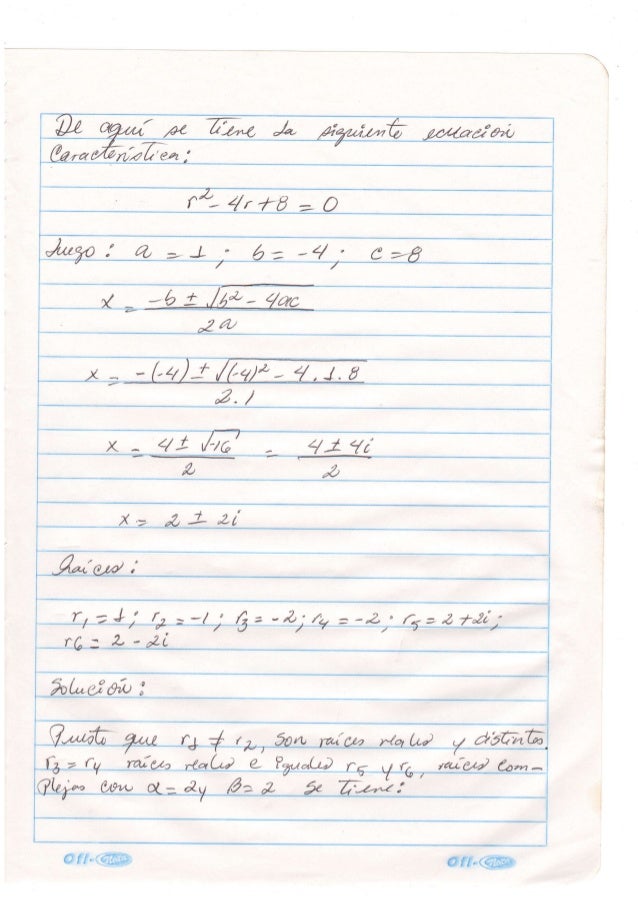 De aquí se tiene la siguiente ecuación
Característica:
r² - 4r + 8 = 0
Luego: a = 1; b = -4; c = 8
x = (-b ± √(b² - 4ac)) / 2a
x = (-(-4) ± √((-4)² - 4.1.8)) / 2.1
x = (4 ± √-16) / 2 = (4 ± 4i) / 2
x = 2 ± 2i
Raíces:
r₁ = 1; r₂ = -1; r₃ = -2; r₄ = -2; r₅ = 2 + 2i;
r6 = 2 - 2i
Solución:
Puesto que r₁ ≠ r₂, son raíces reales y distintas.
r₃ = r₄ raíces reales e iguales r₅ y r₆, raíces com-
plejas con α = 2 y β = 2 se tiene:
Off-Nota Off-Nota